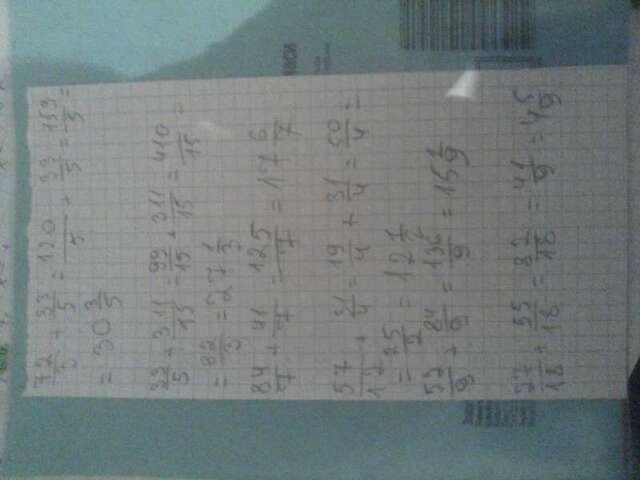 72/3 + 33/5 = 120/5 + 33/5 = 153/5 =
= 30 3/5
33/5 + 311/15 = 99/15 + 311/15 = 410/15 =
= 82/3 = 27 1/3
84/7 + 41/7 = 125/7 = 17 6/7
57/12 + 31/4 = 19/4 + 31/4 = 50/4 =
= 25/2 = 12 1/2
52/9 + 84/9 = 136/9 = 15 1/9
27/18 + 55/18 = 82/18 = 41/9 = 4 5/9